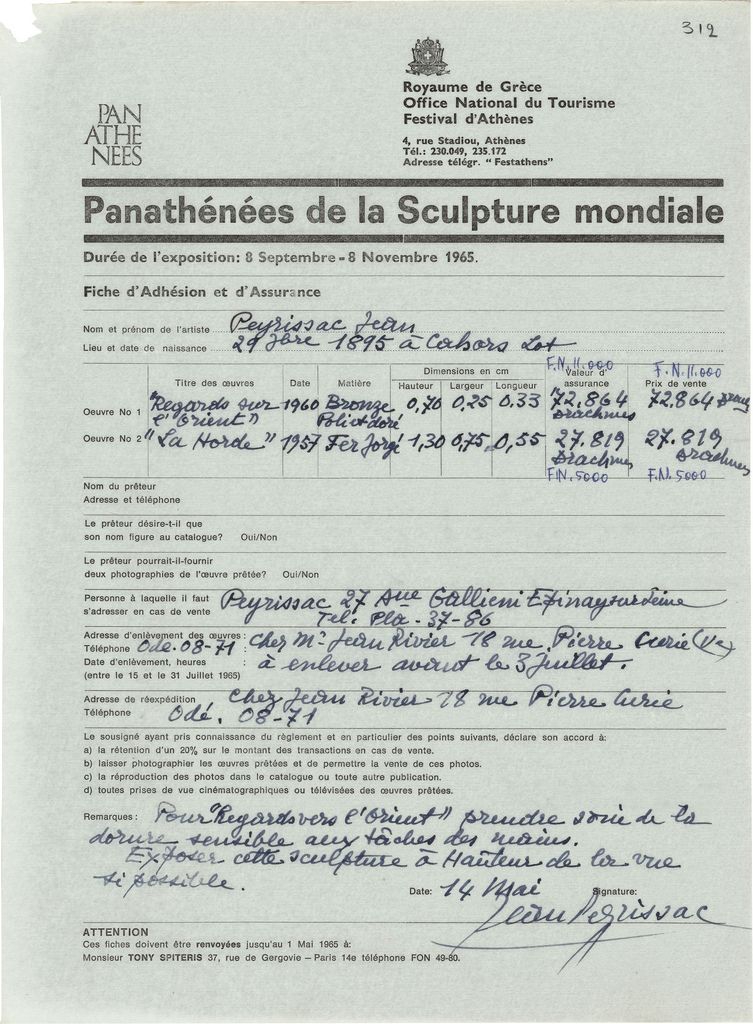 312
PAN
ATHE
NEES
Royaume de Grèce
Office National du Tourisme
Festival d'Athènes
4, rue Stadiou, Athènes
Tél.: 230.049, 235.172
Adresse télégr. "Festathens"
Panathénées de la Sculpture mondiale
Durée de l'exposition: 8 Septembre - 8 Novembre 1965.
Fiche d'Adhésion et d'Assurance
Nom et prénom de l'artiste Peyrissac Jean
Lieu et date de naissance 29 1895 à Cahors Lot
F.N. 11.000 F.N. 11.000
Titre des œuvres Date Matière Dimensions en cm Valeur d' Prix de vente
Hauteur Largeur Longueur assurance
Oeuvre No 1 "Regards sur 1960 Bronze 0,70 0,25 0,33 72.864 72.864
l'Orient" Poli et doré Drachmes
Oeuvre No 2 "La Horde" 1957 Fer forgé 1,30 0,75 0,55 27.819 27.819
Drachmes Drachmes
F.N. 5000 F.N. 5000
Nom du prêteur
Adresse et téléphone
Le prêteur désire-t-il que
son nom figure au catalogue? Oui/Non
Le prêteur pourrait-il-fournir
deux photographies de l'œuvre prêtée? Oui/Non
Personne à laquelle il faut Peyrissac 27 Ave Gallieni Epinay sur Seine
s'adresser en cas de vente Tel: Pla - 37-86
Adresse d'enlèvement des œuvres : chez Mr Jean Rivier 18 rue Pierre Curie (Ve)
Téléphone Odé. 08-71 :
Date d'enlèvement, heures : à enlever avant le 3 Juillet.
(entre le 15 et le 31 Juillet 1965)
Adresse de réexpédition chez Jean Rivier 18 rue Pierre Curie
Téléphone Odé. 08-71
Le sousigné ayant pris connaissance du règlement et en particulier des points suivants, déclare son accord à:
a) la rétention d'un 20% sur le montant des transactions en cas de vente.
b) laisser photographier les œuvres prêtées et de permettre la vente de ces photos.
c) la réproduction des photos dans le catalogue ou toute autre publication.
d) toutes prises de vue cinématographiques ou télévisées des œuvres prêtées.
Remarques : Pour "Regards vers l'Orient" prendre soin de la
dorure sensible aux tâches des mains.
Exposer cette sculpture à Hauteur de la vue
si possible.
Date: 14 Mai Signature:
Jean Peyrissac
ATTENTION
Ces fiches doivent être renvoyées jusqu'au 1 Mai 1965 à:
Monsieur TONY SPITERIS 37, rue de Gergovie – Paris 14e téléphone FON 49-80.